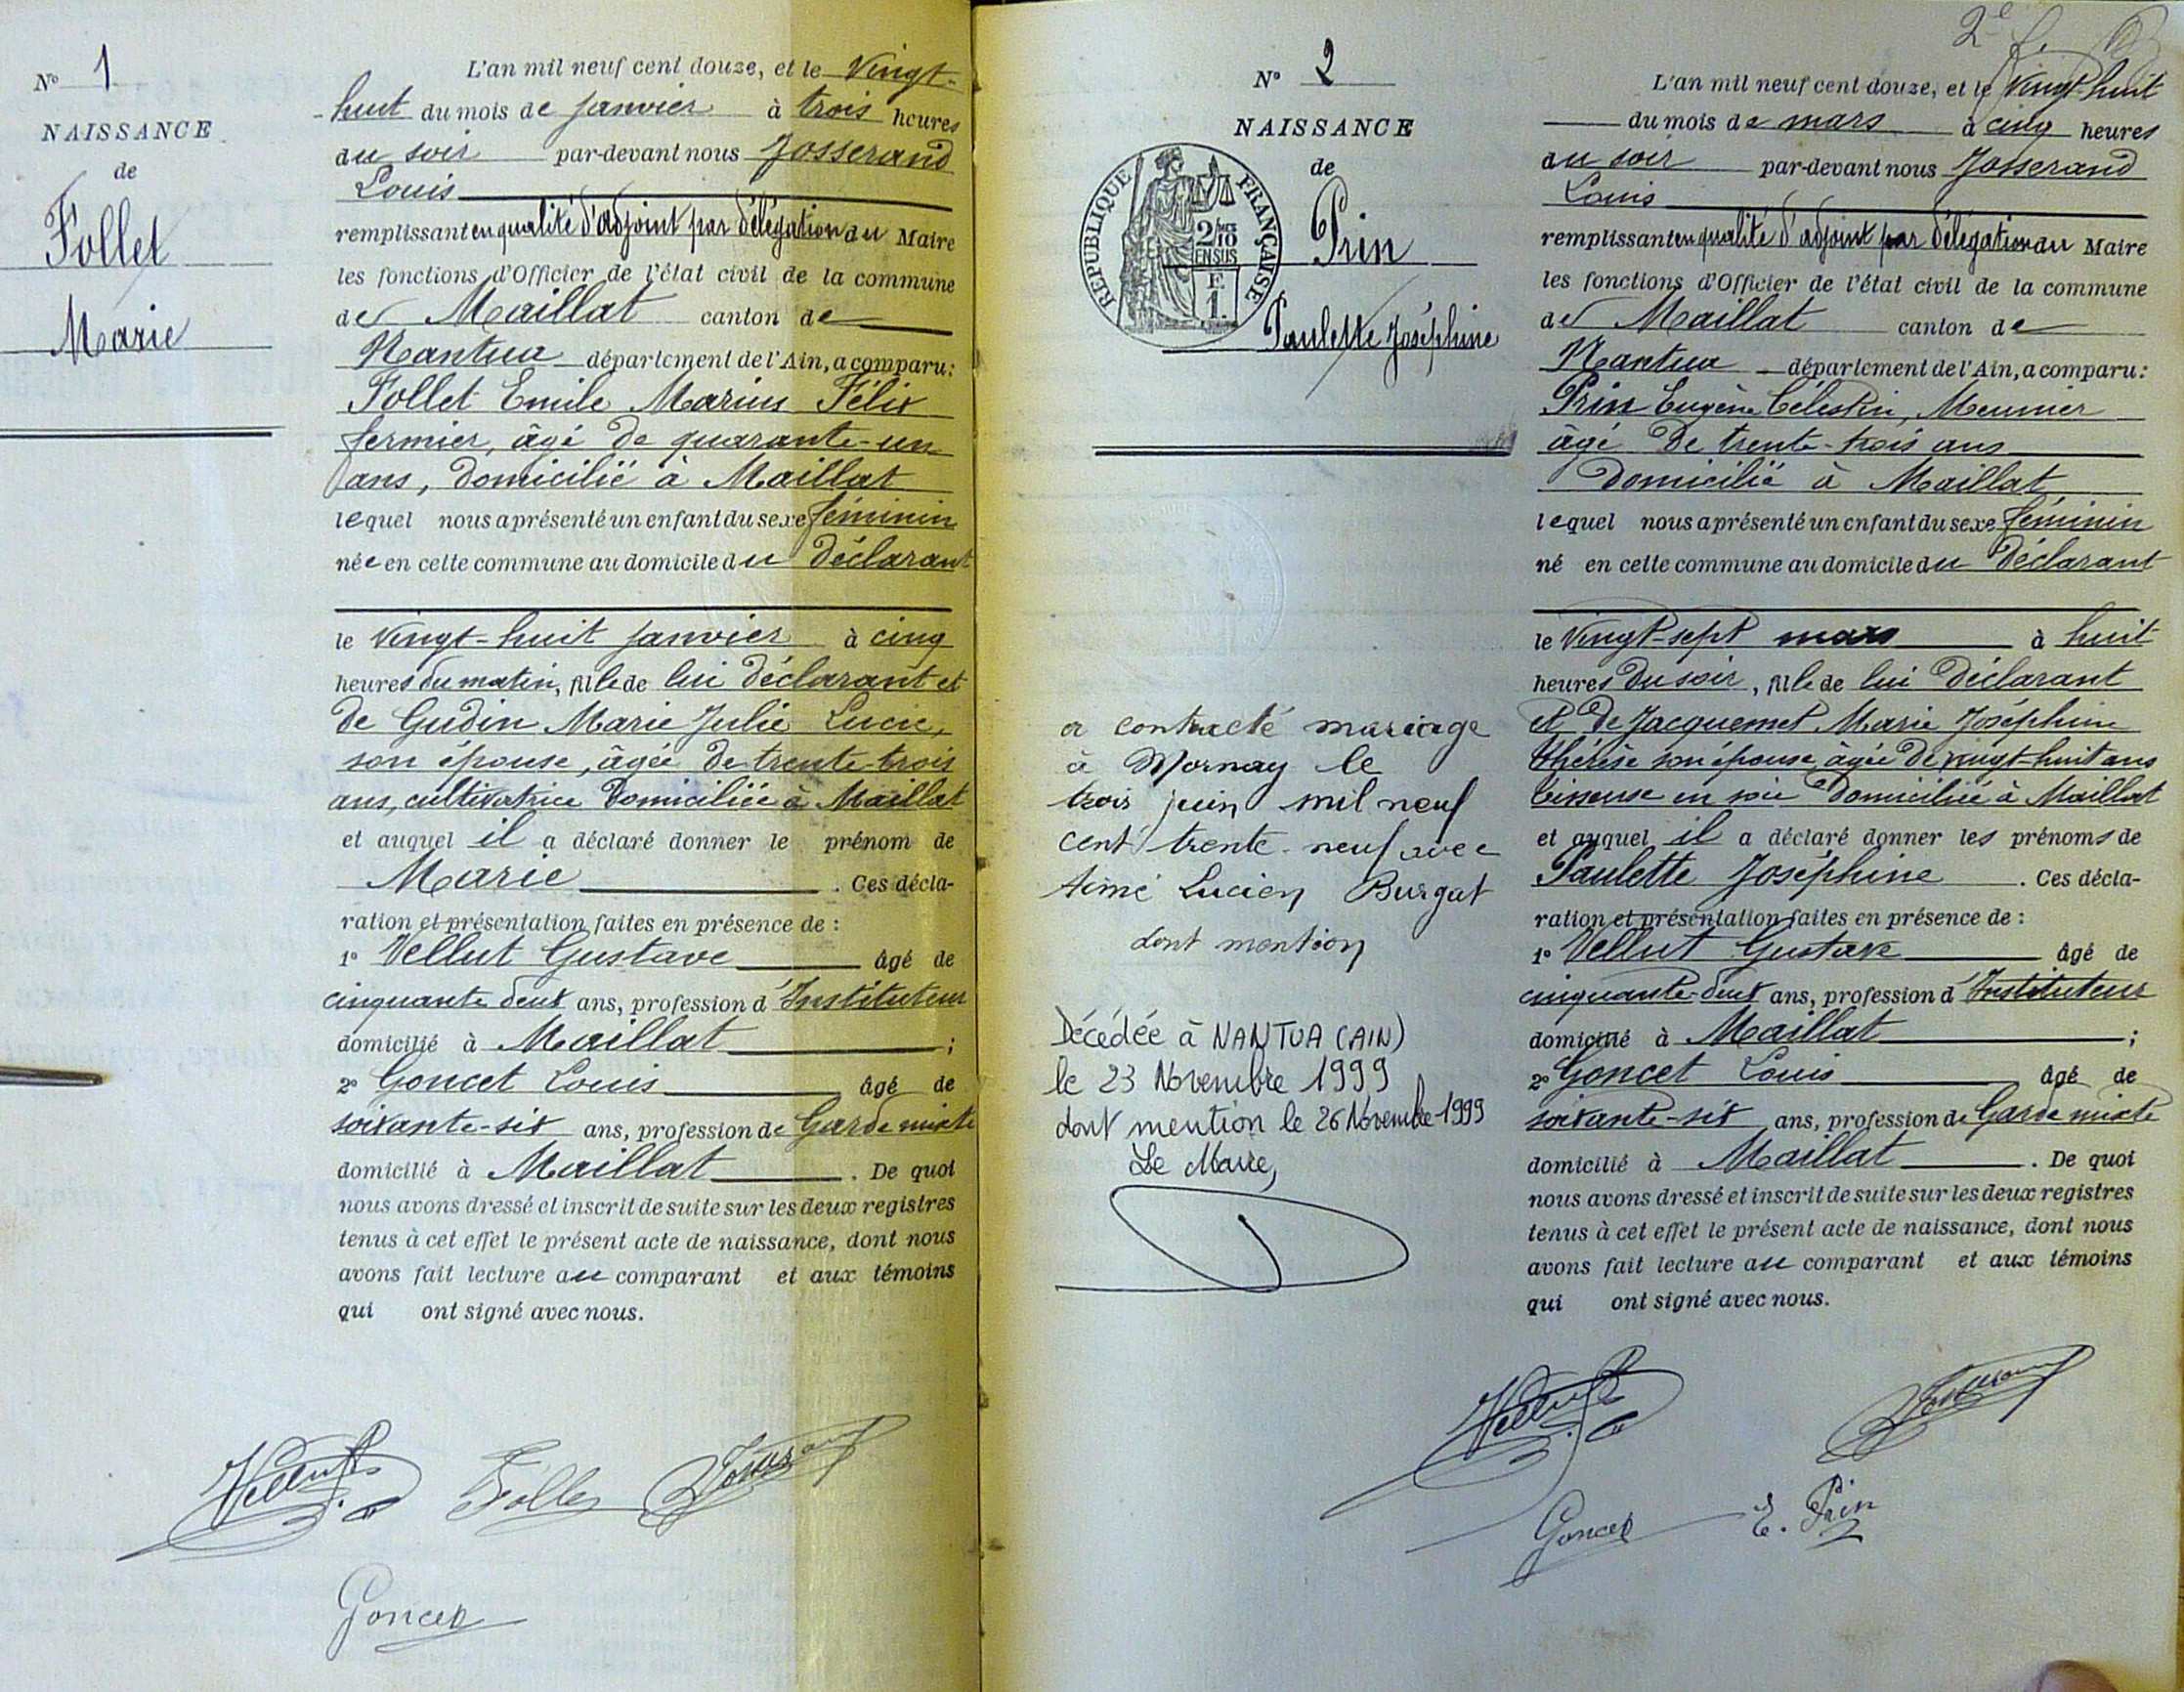 N° 1
NAISSANCE
de
Follet
Marie
L'an mil neuf cent douze, et le Vingt-
-huit du mois de janvier à trois heures
du soir par-devant nous Josserand
Louis
remplissant en qualité d'adjoint par délégation du Maire
les fonctions d'Officier de l'état civil de la commune
de Maillat canton de
Nantua département de l'Ain, a comparu:
Follet Emile Marius Félix
fermier, âgé de quarante-un
ans, domicilié à Maillat
lequel nous a présenté un enfant du sexe féminin
née en cette commune au domicile du déclarant
le vingt-huit janvier à cinq
heures du matin, fille de lui déclarant et
de Gudin Marie Julie Lucie,
son épouse, âgée de trente-trois
ans, cultivatrice domiciliée à Maillat
et auquel il a déclaré donner le prénom de
Marie . Ces décla-
ration et présentation faites en présence de :
1° Vellut Gustave âgé de
cinquante deux ans, profession d'Instituteur
domicilié à Maillat ;
2° Goncet Louis âgé de
soixante-six ans, profession de Garde mixte
domicilié à Maillat . De quoi
nous avons dressé et inscrit de suite sur les deux registres
tenus à cet effet le présent acte de naissance, dont nous
avons fait lecture au comparant et aux témoins
qui ont signé avec nous.
Vellut Follet Josserand
Goncet
N° 2
NAISSANCE
de
RÉPUBLIQUE FRANÇAISE
2/10
EN SUS
F.
1.
Prin
Paulette Joséphine
a contracté mariage
à Mornay le
trois juin mil neuf
cent trente-neuf avec
Aimé Lucien Burgat
dont mention
Décédée à NANTUA (AIN)
le 23 Novembre 1999
dont mention le 26 Novembre 1999
Le Maire,
2e f.
L'an mil neuf cent douze, et le Vingt-huit
du mois de mars à cinq heures
du soir par-devant nous Josserand
Louis
remplissant en qualité d'adjoint par délégation du Maire
les fonctions d'Officier de l'état civil de la commune
de Maillat canton de
Nantua département de l'Ain, a comparu:
Prin Eugène Célestin, Meunier
âgé de trente-trois ans
domicilié à Maillat
lequel nous a présenté un enfant du sexe féminin
né en cette commune au domicile du déclarant
le vingt-sept mars à huit
heures du soir, fille de lui déclarant
et de Jacquemet Marie Joséphine
Thérèse son épouse âgée de vingt-huit ans
tisseuse en soie domiciliée à Maillat
et auquel il a déclaré donner les prénoms de
Paulette Joséphine . Ces décla-
ration et présentation faites en présence de :
1° Vellut Gustave âgé de
cinquante-deux ans, profession d'Instituteur
domicilié à Maillat ;
2° Goncet Louis âgé de
soixante-six ans, profession de Garde mixte
domicilié à Maillat . De quoi
nous avons dressé et inscrit de suite sur les deux registres
tenus à cet effet le présent acte de naissance, dont nous
avons fait lecture au comparant et aux témoins
qui ont signé avec nous.
Vellut Josserand
Goncet E. Prin